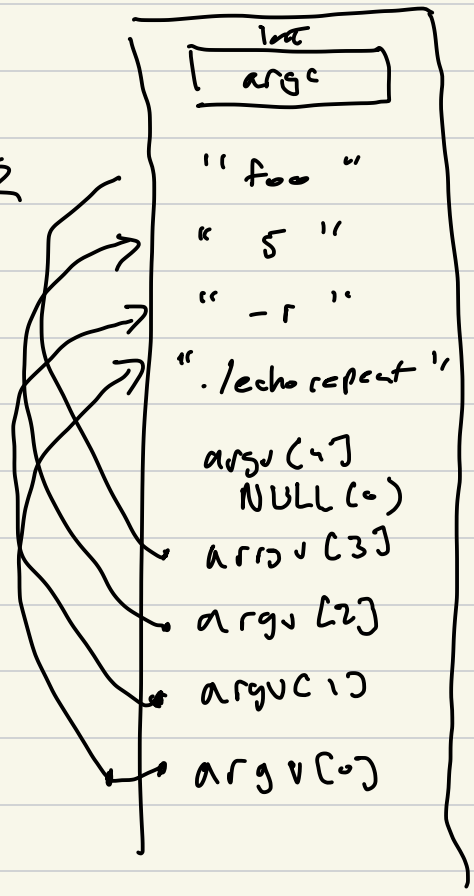 int
argc
"foo"
"5"
"-r"
"./echo repeat"
argv[4]
NULL(0)
arrov[3]
argv[2]
argv[1]
argv[0]